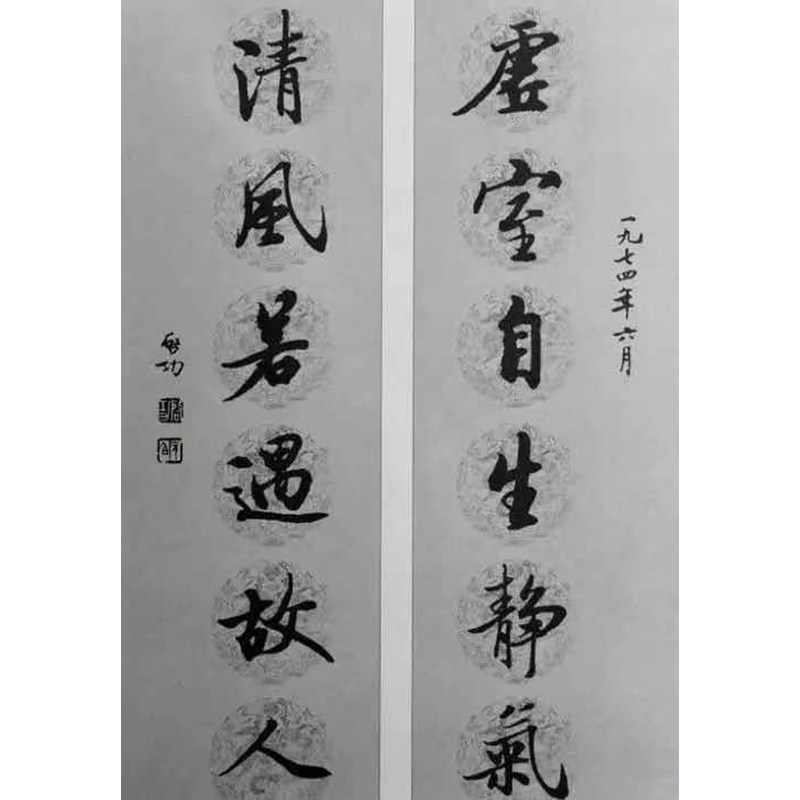 一九七四年六月
虛室自生靜氣
清風若遇故人
啟功